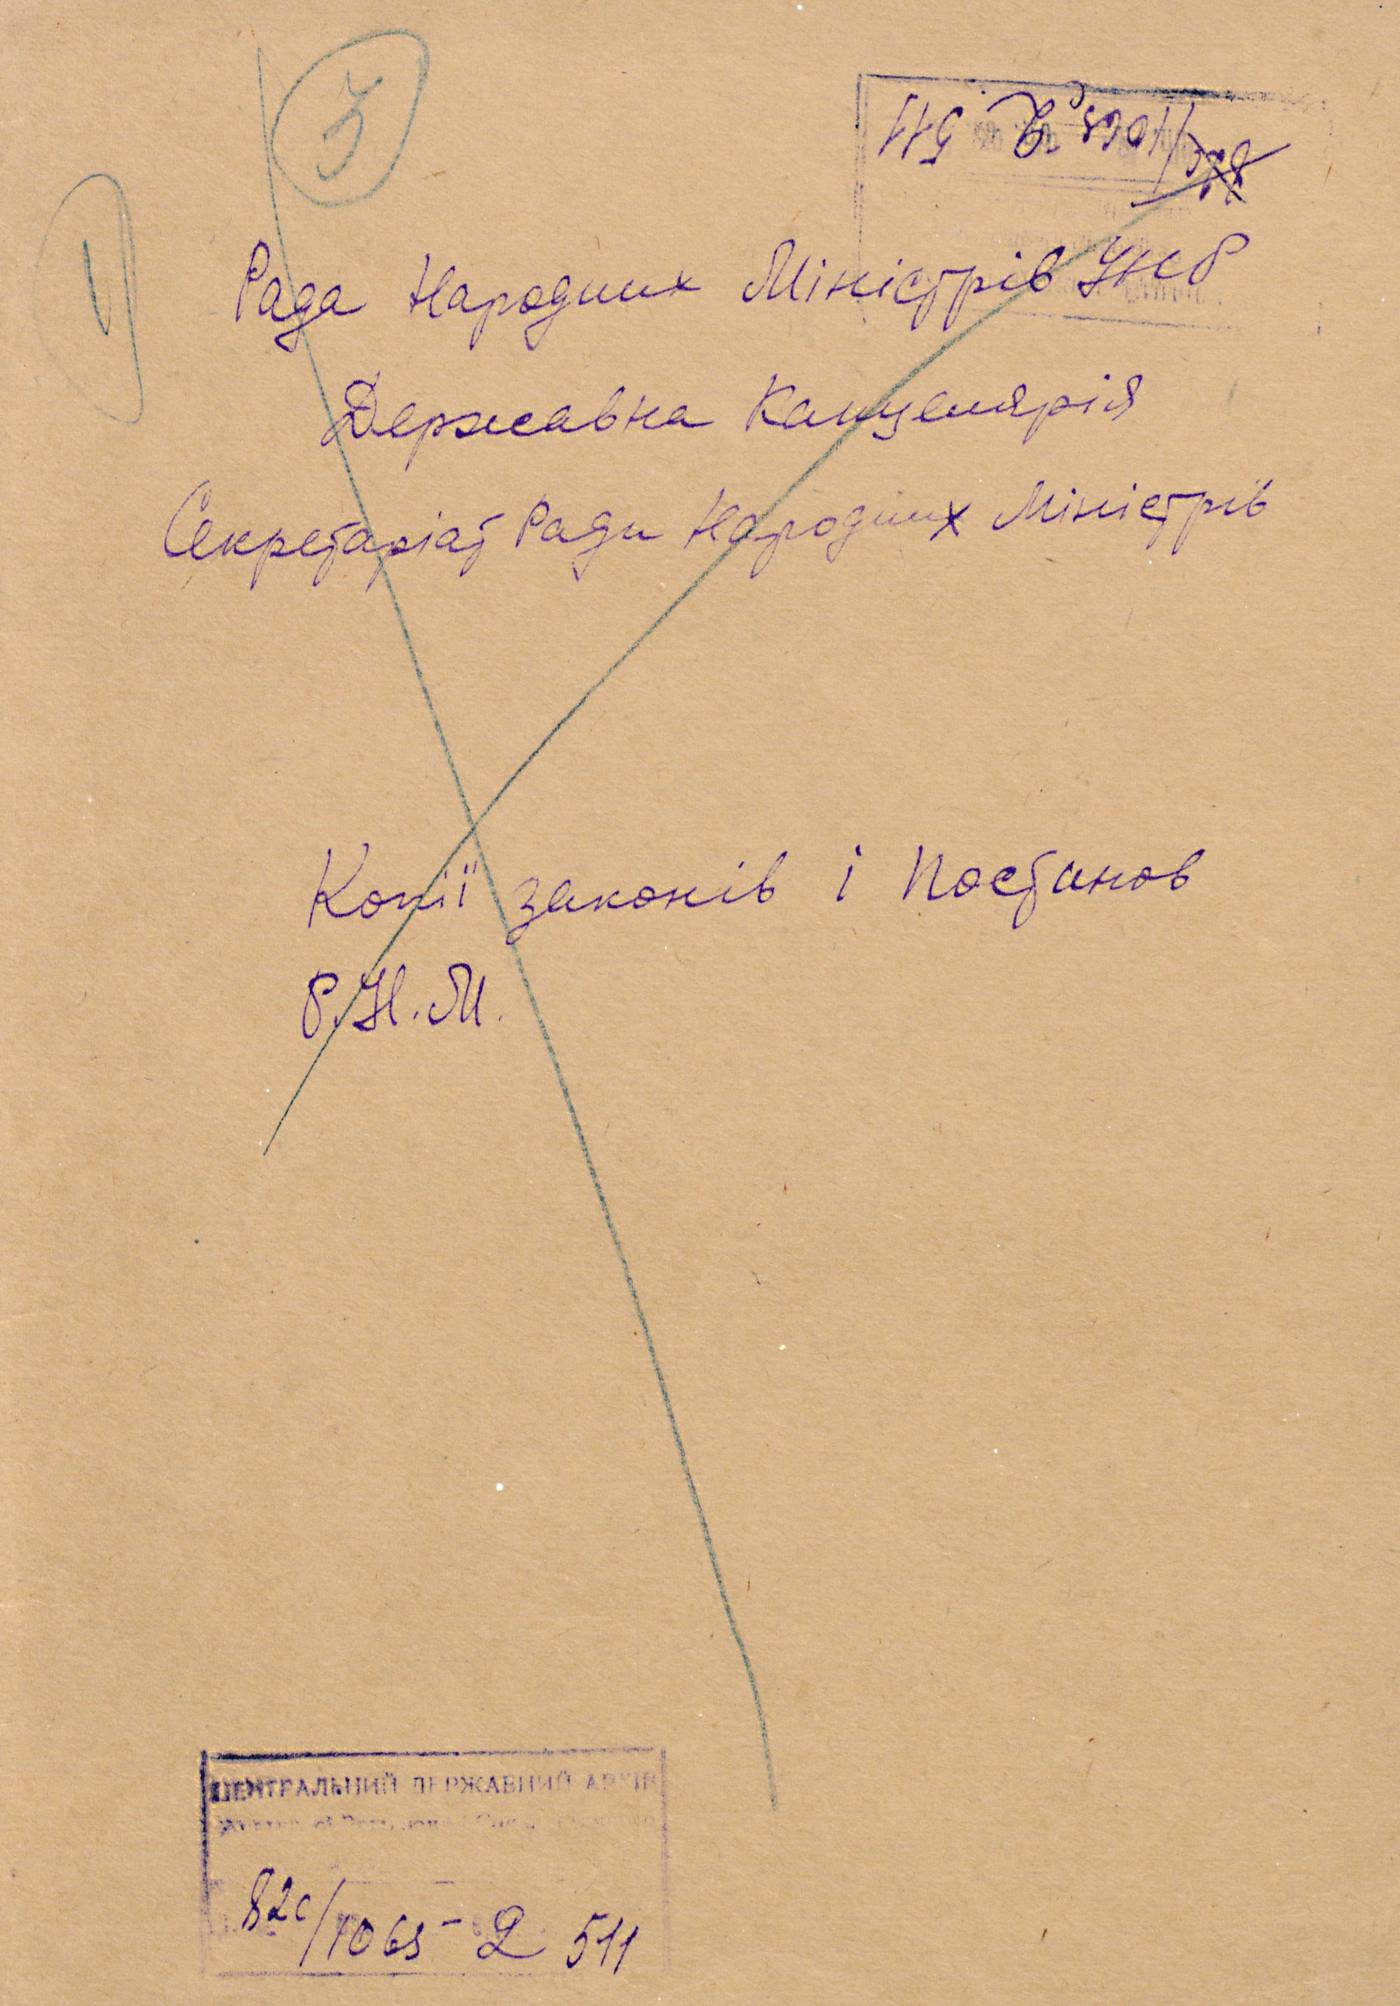 3
Рада Народних Міністрів УНР
Державна Канцелярія
Секретаріат Ради Народних Міністрів
Копії законів і Постанов
Р.Н.М.
ЦЕНТРАЛЬНИЙ ДЕРЖАВНИЙ АРХІВ
82с/1065 - 2 511